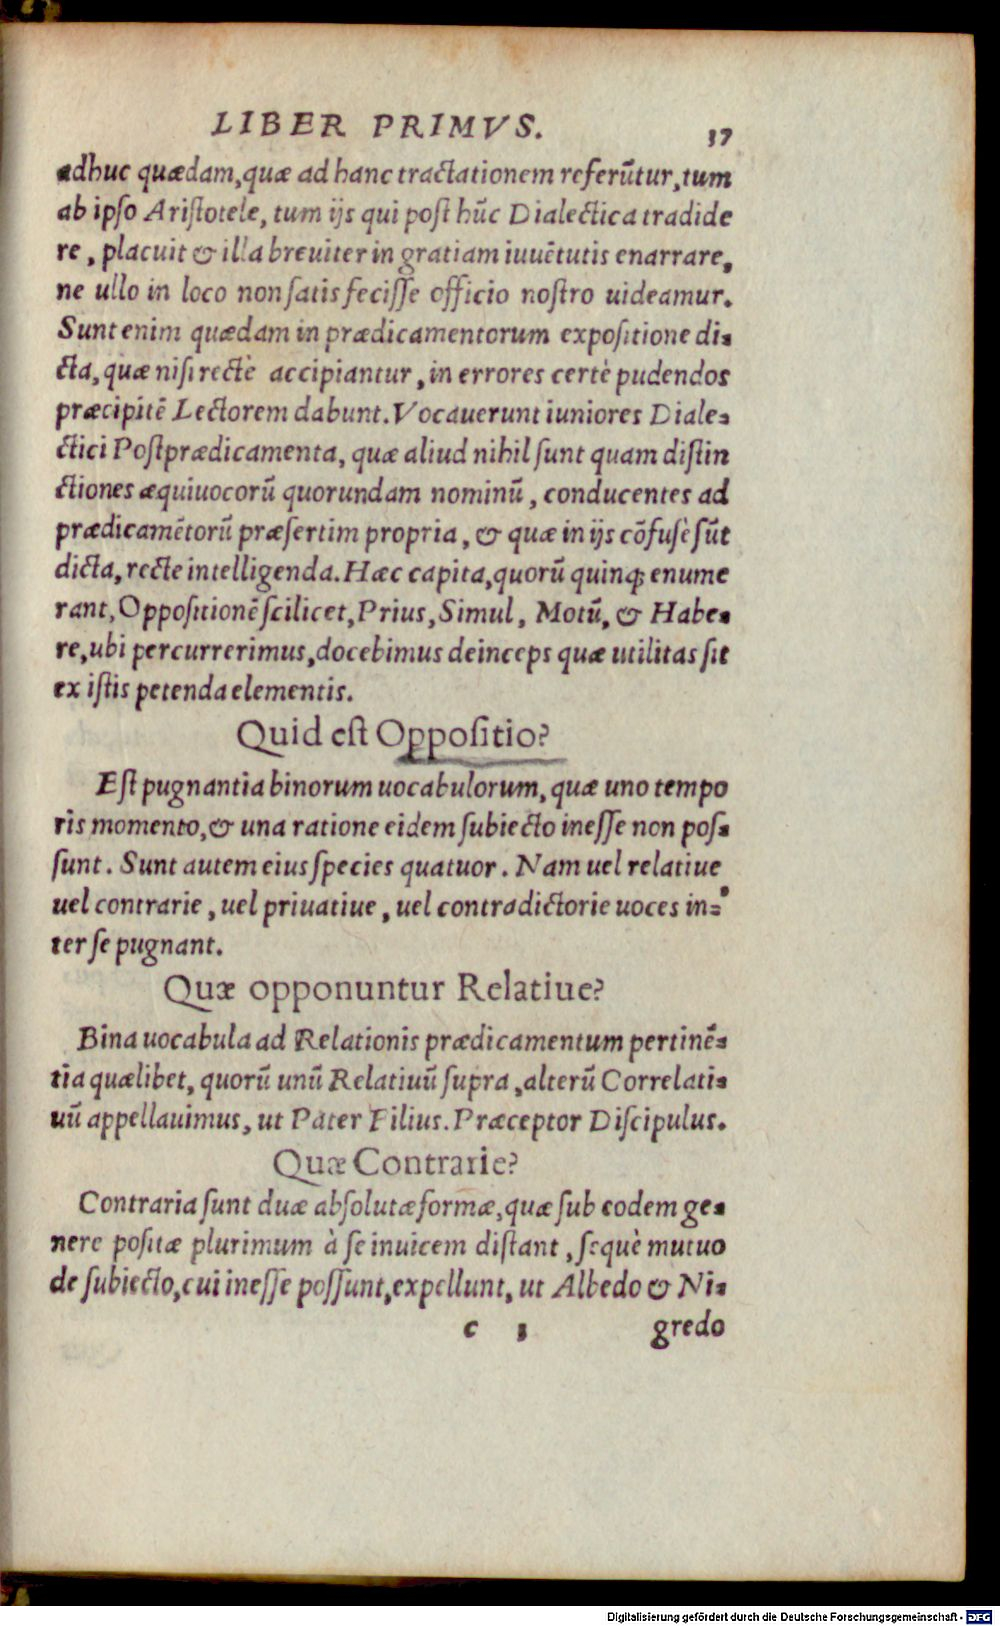 LIBER PRIMVS. 37
adhuc quædam, quæ ad hanc tractationem referũtur, tum
ab ipso Aristotele, tum ijs qui post hũc Dialectica tradide
re, placuit & illa breuiter in gratiam iuuẽtutis enarrare,
ne ullo in loco non satis fecisse officio nostro uideamur.
Sunt enim quædam in prædicamentorum expositione di-
cta, quæ nisi rectè accipiantur, in errores certè pudendos
præcipitẽ Lectorem dabunt. Vocauerunt iuniores Diale-
ctici Postprædicamenta, quæ aliud nihil sunt quam distin
ctiones æquiuocorũ quorundam nominũ, conducentes ad
prædicamẽtorũ præsertim propria, & quæ in ijs cõfusè sũt
dicta, recte intelligenda. Hæc capita, quorũ quinq; enume
rant, Oppositionẽ scilicet, Prius, Simul, Motũ, & Habe-
re, ubi percurrerimus, docebimus deinceps quæ utilitas sit
ex istis petenda elementis.
Quid est Oppositio?
Est pugnantia binorum uocabulorum, quæ uno tempo
ris momento, & una ratione eidem subiecto inesse non pos-
sunt. Sunt autem eius species quatuor. Nam uel relatiue
uel contrarie, uel priuatiue, uel contradictorie uoces in-
ter se pugnant.
Quæ opponuntur Relatiue?
Bina uocabula ad Relationis prædicamentum pertinẽ-
tia quælibet, quorũ unũ Relatiuũ supra, alterũ Correlati-
uũ appellauimus, ut Pater Filius. Præceptor Discipulus.
Quæ Contrarie?
Contraria sunt duæ absolutæ formæ, quæ sub eodem ge-
nere positæ plurimum à se inuicem distant, sequè mutuo
de subiecto, cui inesse possunt, expellunt, ut Albedo & Ni-
c 5 gredo
Digitalisierung gefördert durch die Deutsche Forschungsgemeinschaft - DFG